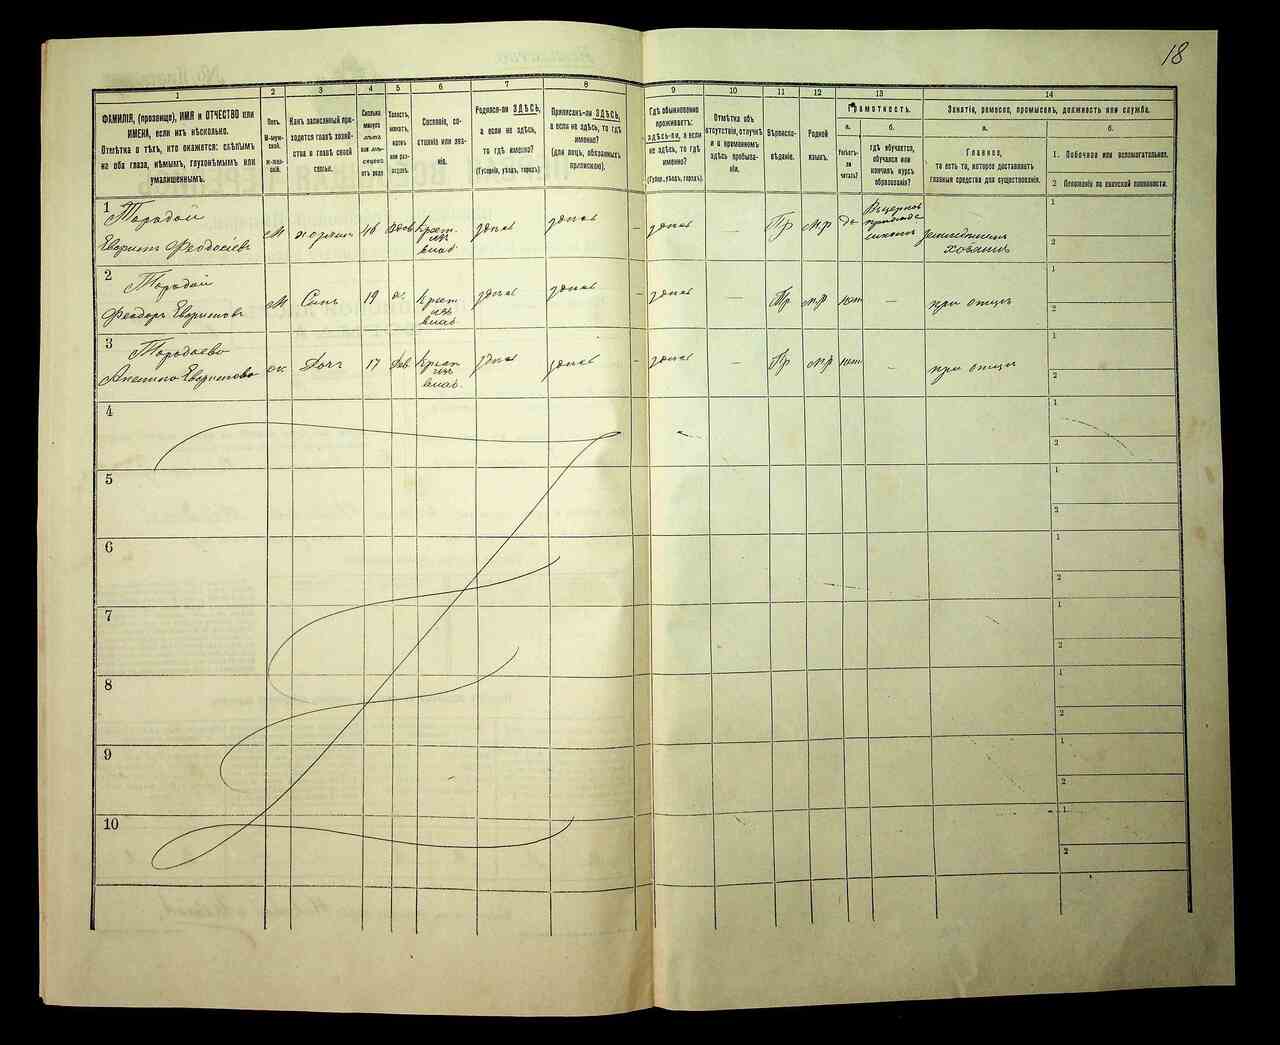 18
1
2
3
4
5
6
7
8
9
10
11
12
13
14
ФАМИЛІЯ, (прозвище), ИМЯ и ОТЧЕСТВО или
ИМЕНА, если ихъ нѣсколько.
Отмѣтка о тѣхъ, кто окажется: слѣпымъ
на оба глаза, нѣмымъ, глухонѣмымъ или
умалишеннымъ.
Полъ.
М-муж-
ской.
Ж-жен-
скій.
Какъ записанный при-
ходится главѣ хозяй-
ства и главѣ своей
семьи.
Сколько
минуло
лѣтъ
или мѣ-
сяцевъ
отъ роду
Холостъ,
женатъ,
вдовъ
или раз-
веденъ.
Сословіе, со-
стояніе или зва-
ніе.
Родился-ли ЗДѢСЬ,
а если не здѣсь,
то гдѣ именно?
(Губернія, уѣздъ, городъ).
Приписанъ-ли ЗДѢСЬ,
а если не здѣсь, то гдѣ
именно?
(для лицъ, обязанныхъ
припискою).
Гдѣ обыкновенно
проживаетъ:
здѣсь-ли, а если
не здѣсь, то гдѣ
именно?
(Губерн., уѣздъ, городъ).
Отмѣтка объ
отсутствіи, отлучкѣ
и о временномъ
здѣсь пребыва-
ніи.
Вѣроиспо-
вѣданіе.
Родной
языкъ.
Грамотность.
а.
б.
Умѣетъ-
ли
читать?
гдѣ обучается,
обучался или
кончилъ курсъ
образованія?
Занятіе, ремесло, промыселъ, должность или служба.
а.
б.
Главное,
то есть то, которое доставляетъ
главныя средства для существованія.
1. Побочное или вспомогательное.
2 Положеніе по воинской повинности.
1
М
хозяинъ
46
вдов
Крест.
изъ
влад.
здѣсь
здѣсь
—
здѣсь
—
Пр
да
1
2
2
Феодоръ
М
Сынъ
19
хо.
Крест.
изъ
влад.
здѣсь
здѣсь
—
здѣсь
—
Пр
нѣт
—
при отцѣ
1
2
3
ж
Доч
17
дѣв.
Крест
изъ
влад.
здѣсь
здѣсь
—
здѣсь
—
Пр
нѣт
—
при отцѣ
1
2
4
1
2
5
1
2
6
1
2
7
1
2
8
1
2
9
1
2
10
1
2